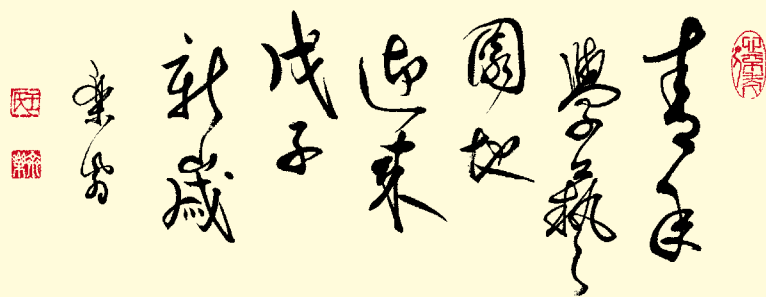 青年
學藝
園地
迎来
戊子
新歲